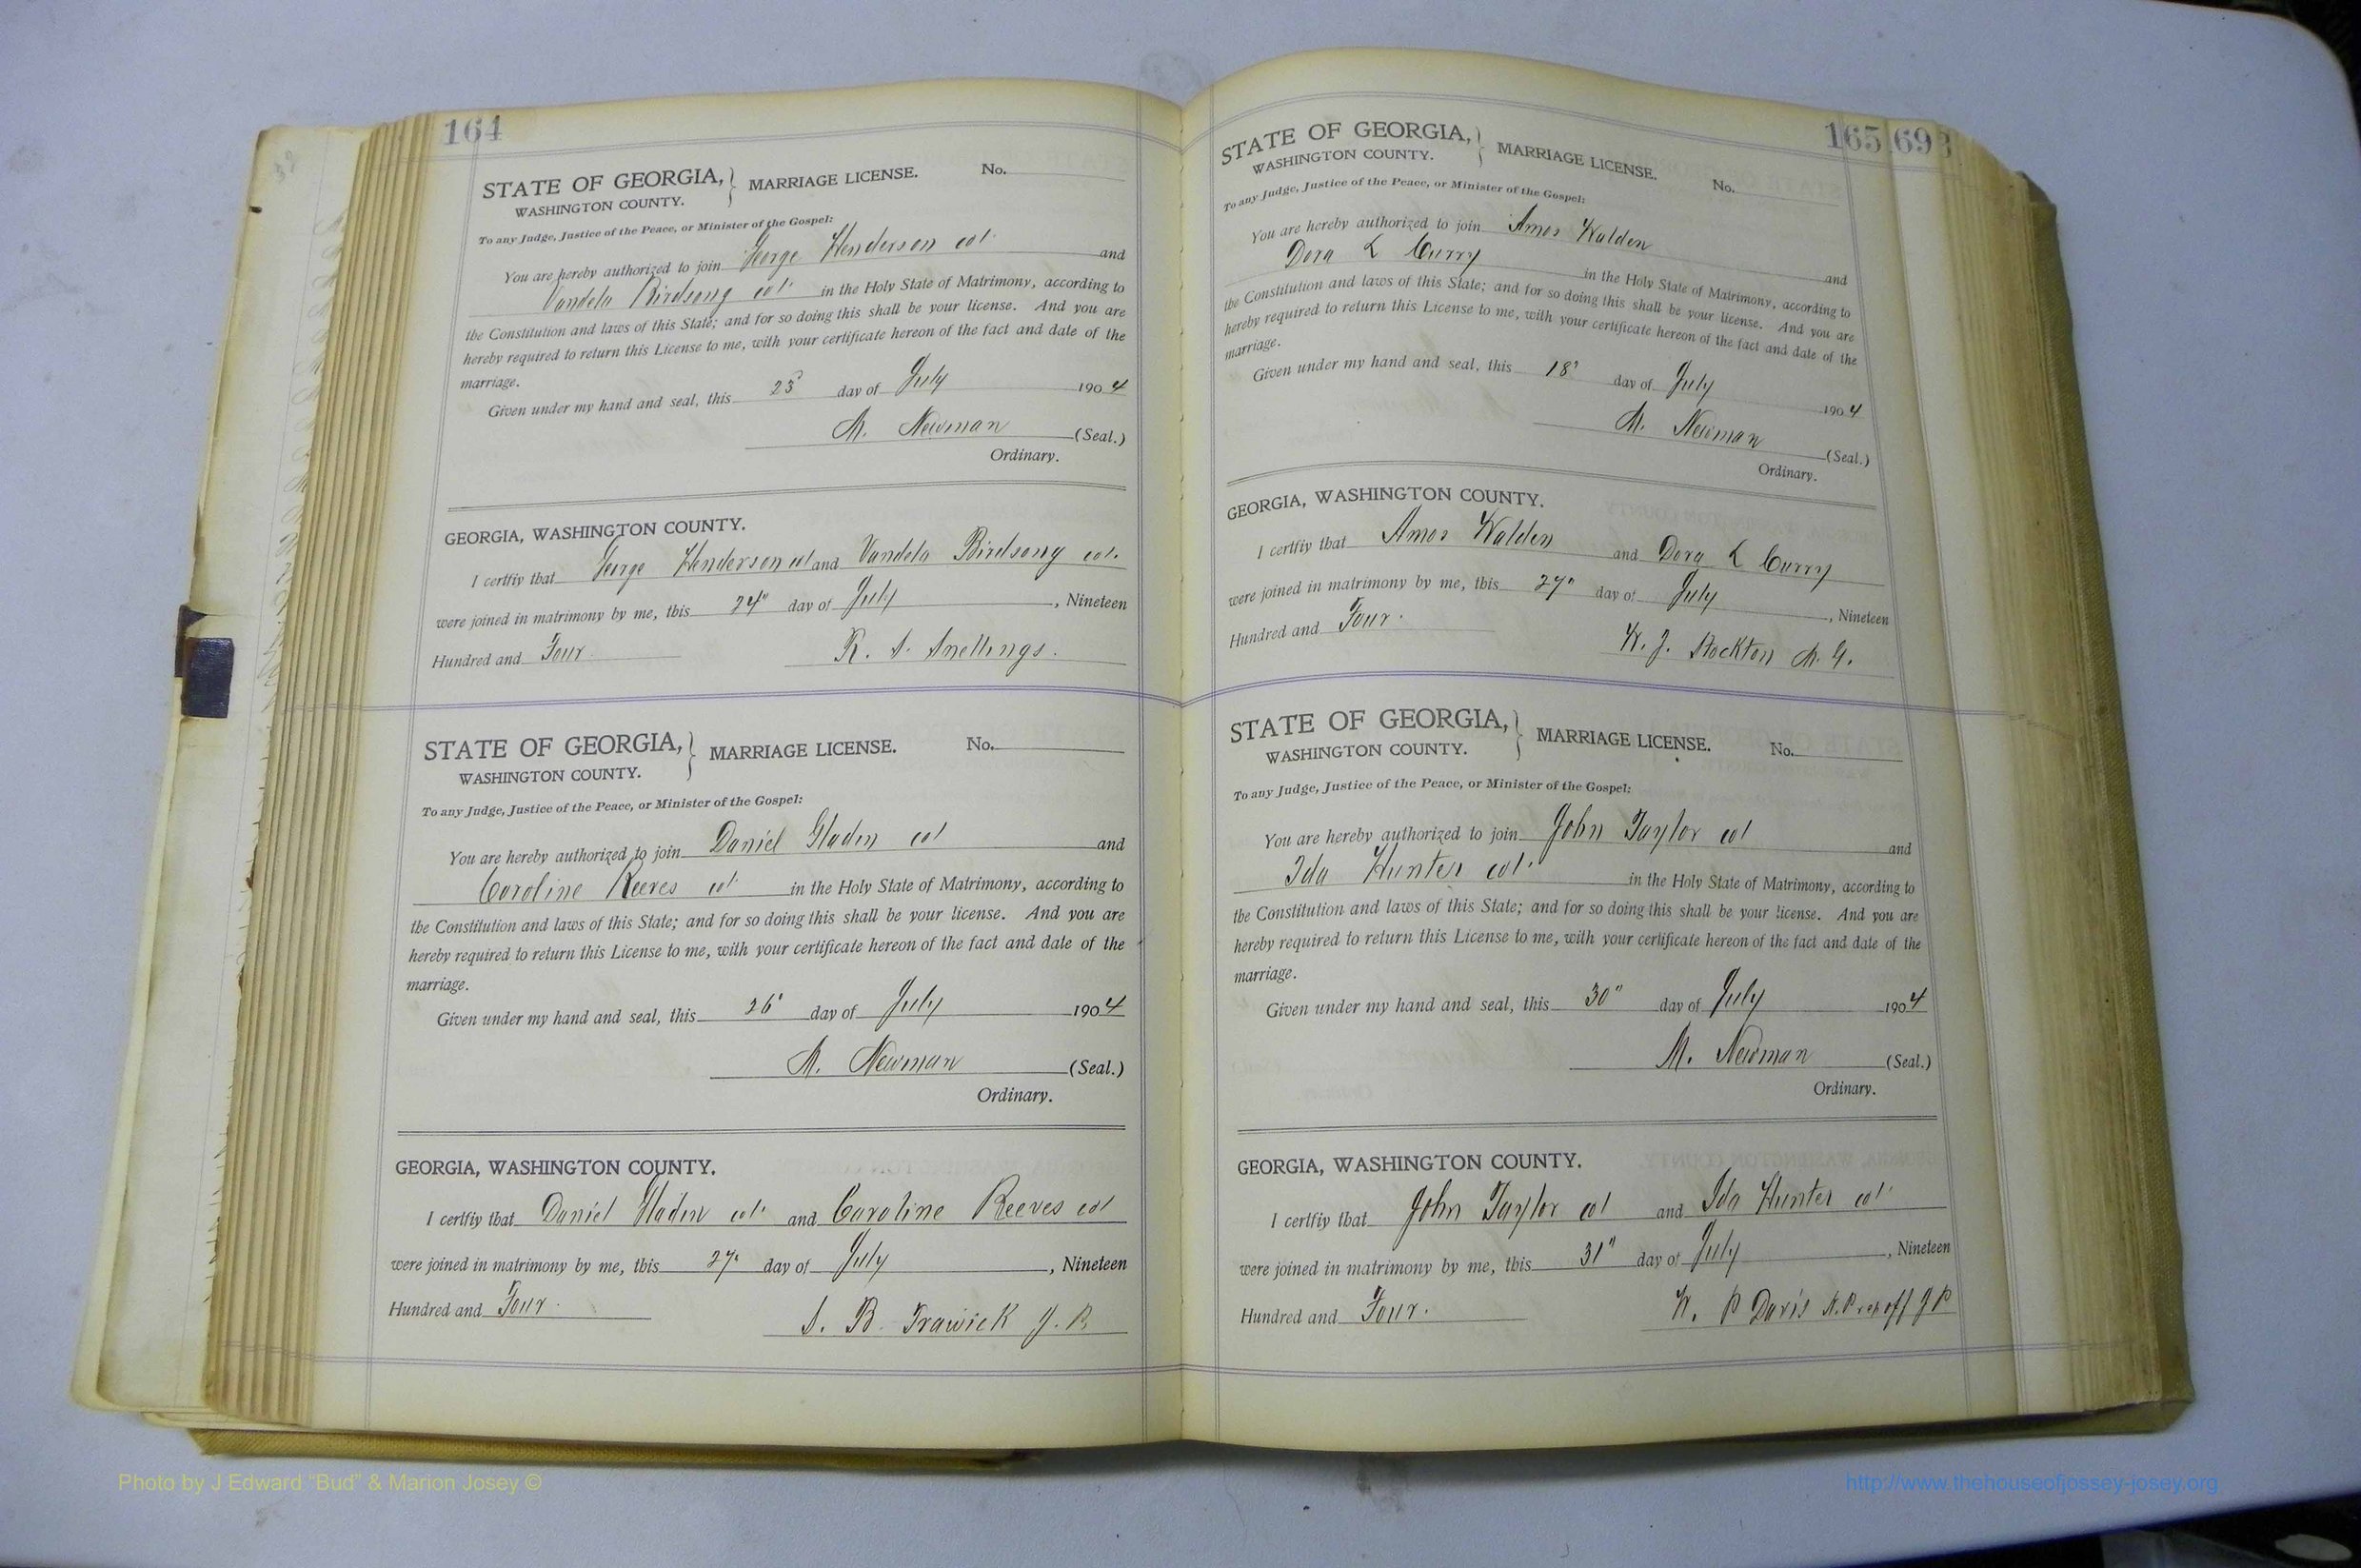 164
STATE OF GEORGIA, } MARRIAGE LICENSE. No.
WASHINGTON COUNTY.
To any Judge, Justice of the Peace, or Minister of the Gospel:
You are hereby authorized to join George Henderson col. and
Vandela Birdsong col. in the Holy State of Matrimony, according to
the Constitution and laws of this State; and for so doing this shall be your license. And you are
hereby required to return this License to me, with your certificate hereon of the fact and date of the
marriage.
Given under my hand and seal, this 23" day of July 1904
M. Newman (Seal.)
Ordinary.
GEORGIA, WASHINGTON COUNTY.
I certfiy that George Henderson col and Vandela Birdsong col.
were joined in matrimony by me, this 24" day of July, Nineteen
Hundred and Four. R. S. Snellings.
STATE OF GEORGIA, } MARRIAGE LICENSE. No.
WASHINGTON COUNTY.
To any Judge, Justice of the Peace, or Minister of the Gospel:
You are hereby authorized to join Daniel Gladin col and
Caroline Reeves col. in the Holy State of Matrimony, according to
the Constitution and laws of this State; and for so doing this shall be your license. And you are
hereby required to return this License to me, with your certificate hereon of the fact and date of the
marriage.
Given under my hand and seal, this 26" day of July 1904
M. Newman (Seal.)
Ordinary.
GEORGIA, WASHINGTON COUNTY.
I certfiy that Daniel Gladin col. and Caroline Reeves col
were joined in matrimony by me, this 27" day of July, Nineteen
Hundred and Four. S. B. Trawick J. P.
165 693
STATE OF GEORGIA, } MARRIAGE LICENSE. No.
WASHINGTON COUNTY.
To any Judge, Justice of the Peace, or Minister of the Gospel:
You are hereby authorized to join Amos Walden and
Dora L Curry in the Holy State of Matrimony, according to
the Constitution and laws of this State; and for so doing this shall be your license. And you are
hereby required to return this License to me, with your certificate hereon of the fact and date of the
marriage.
Given under my hand and seal, this 18" day of July 1904
M. Newman (Seal.)
Ordinary.
GEORGIA, WASHINGTON COUNTY.
I certfiy that Amos Walden and Dora L Curry
were joined in matrimony by me, this 27" day of July, Nineteen
Hundred and Four. W. J. Stockton M. G.
STATE OF GEORGIA, } MARRIAGE LICENSE. No.
WASHINGTON COUNTY.
To any Judge, Justice of the Peace, or Minister of the Gospel:
You are hereby authorized to join John Taylor col and
Ida Hunter col. in the Holy State of Matrimony, according to
the Constitution and laws of this State; and for so doing this shall be your license. And you are
hereby required to return this License to me, with your certificate hereon of the fact and date of the
marriage.
Given under my hand and seal, this 30" day of July 1904
M. Newman (Seal.)
Ordinary.
GEORGIA, WASHINGTON COUNTY.
I certfiy that John Taylor col and Ida Hunter col.
were joined in matrimony by me, this 31" day of July, Nineteen
Hundred and Four. W. P Davis N. P & ex off J P
Photo by J Edward “Bud” & Marion Josey ©
http://www.thehouseofjossey-josey.org